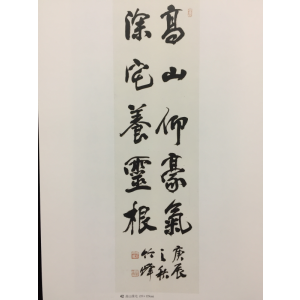 高山仰豪氣
深宅養靈根
庚辰
之秋